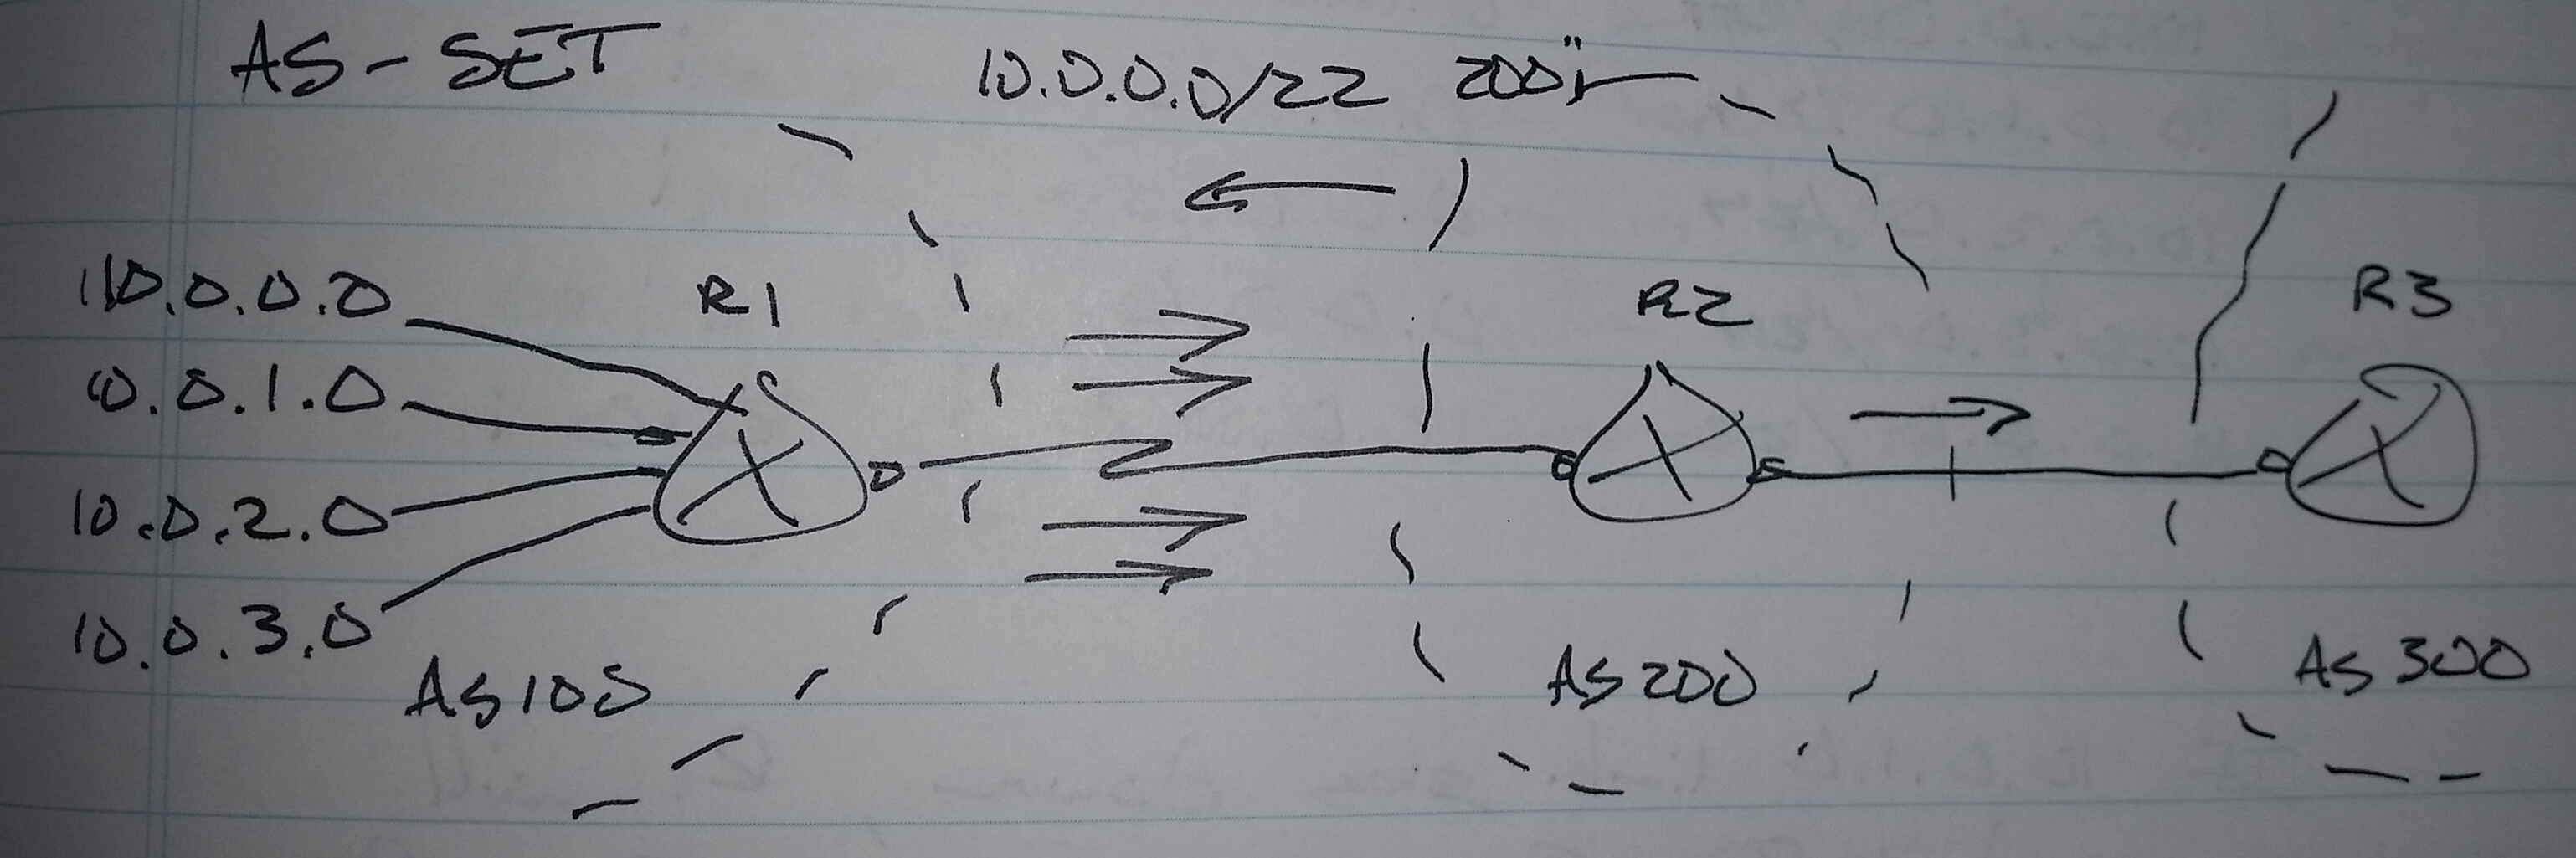 AS-SET
10.0.0.0/22 200i
10.0.0.0
10.0.1.0
10.0.2.0
10.0.3.0
R1
R2
R3
AS100
AS200
AS300